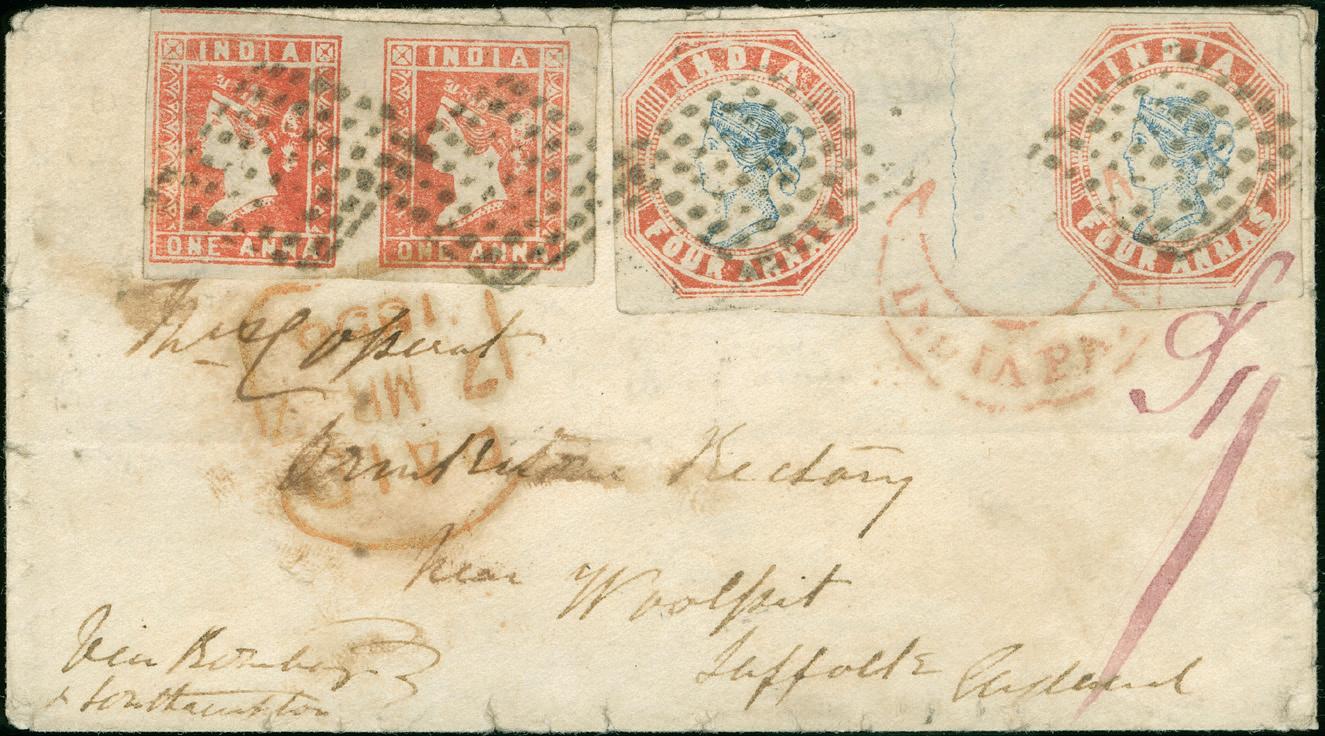 INDIA INDIA INDIA INDIA
ONE ANNA ONE ANNA FOUR ANNAS FOUR ANNAS
INDIA PAID
PAID
17 MR
Rectory
Near Woolpit
Suffolk England
Via Bombay
& Southampton